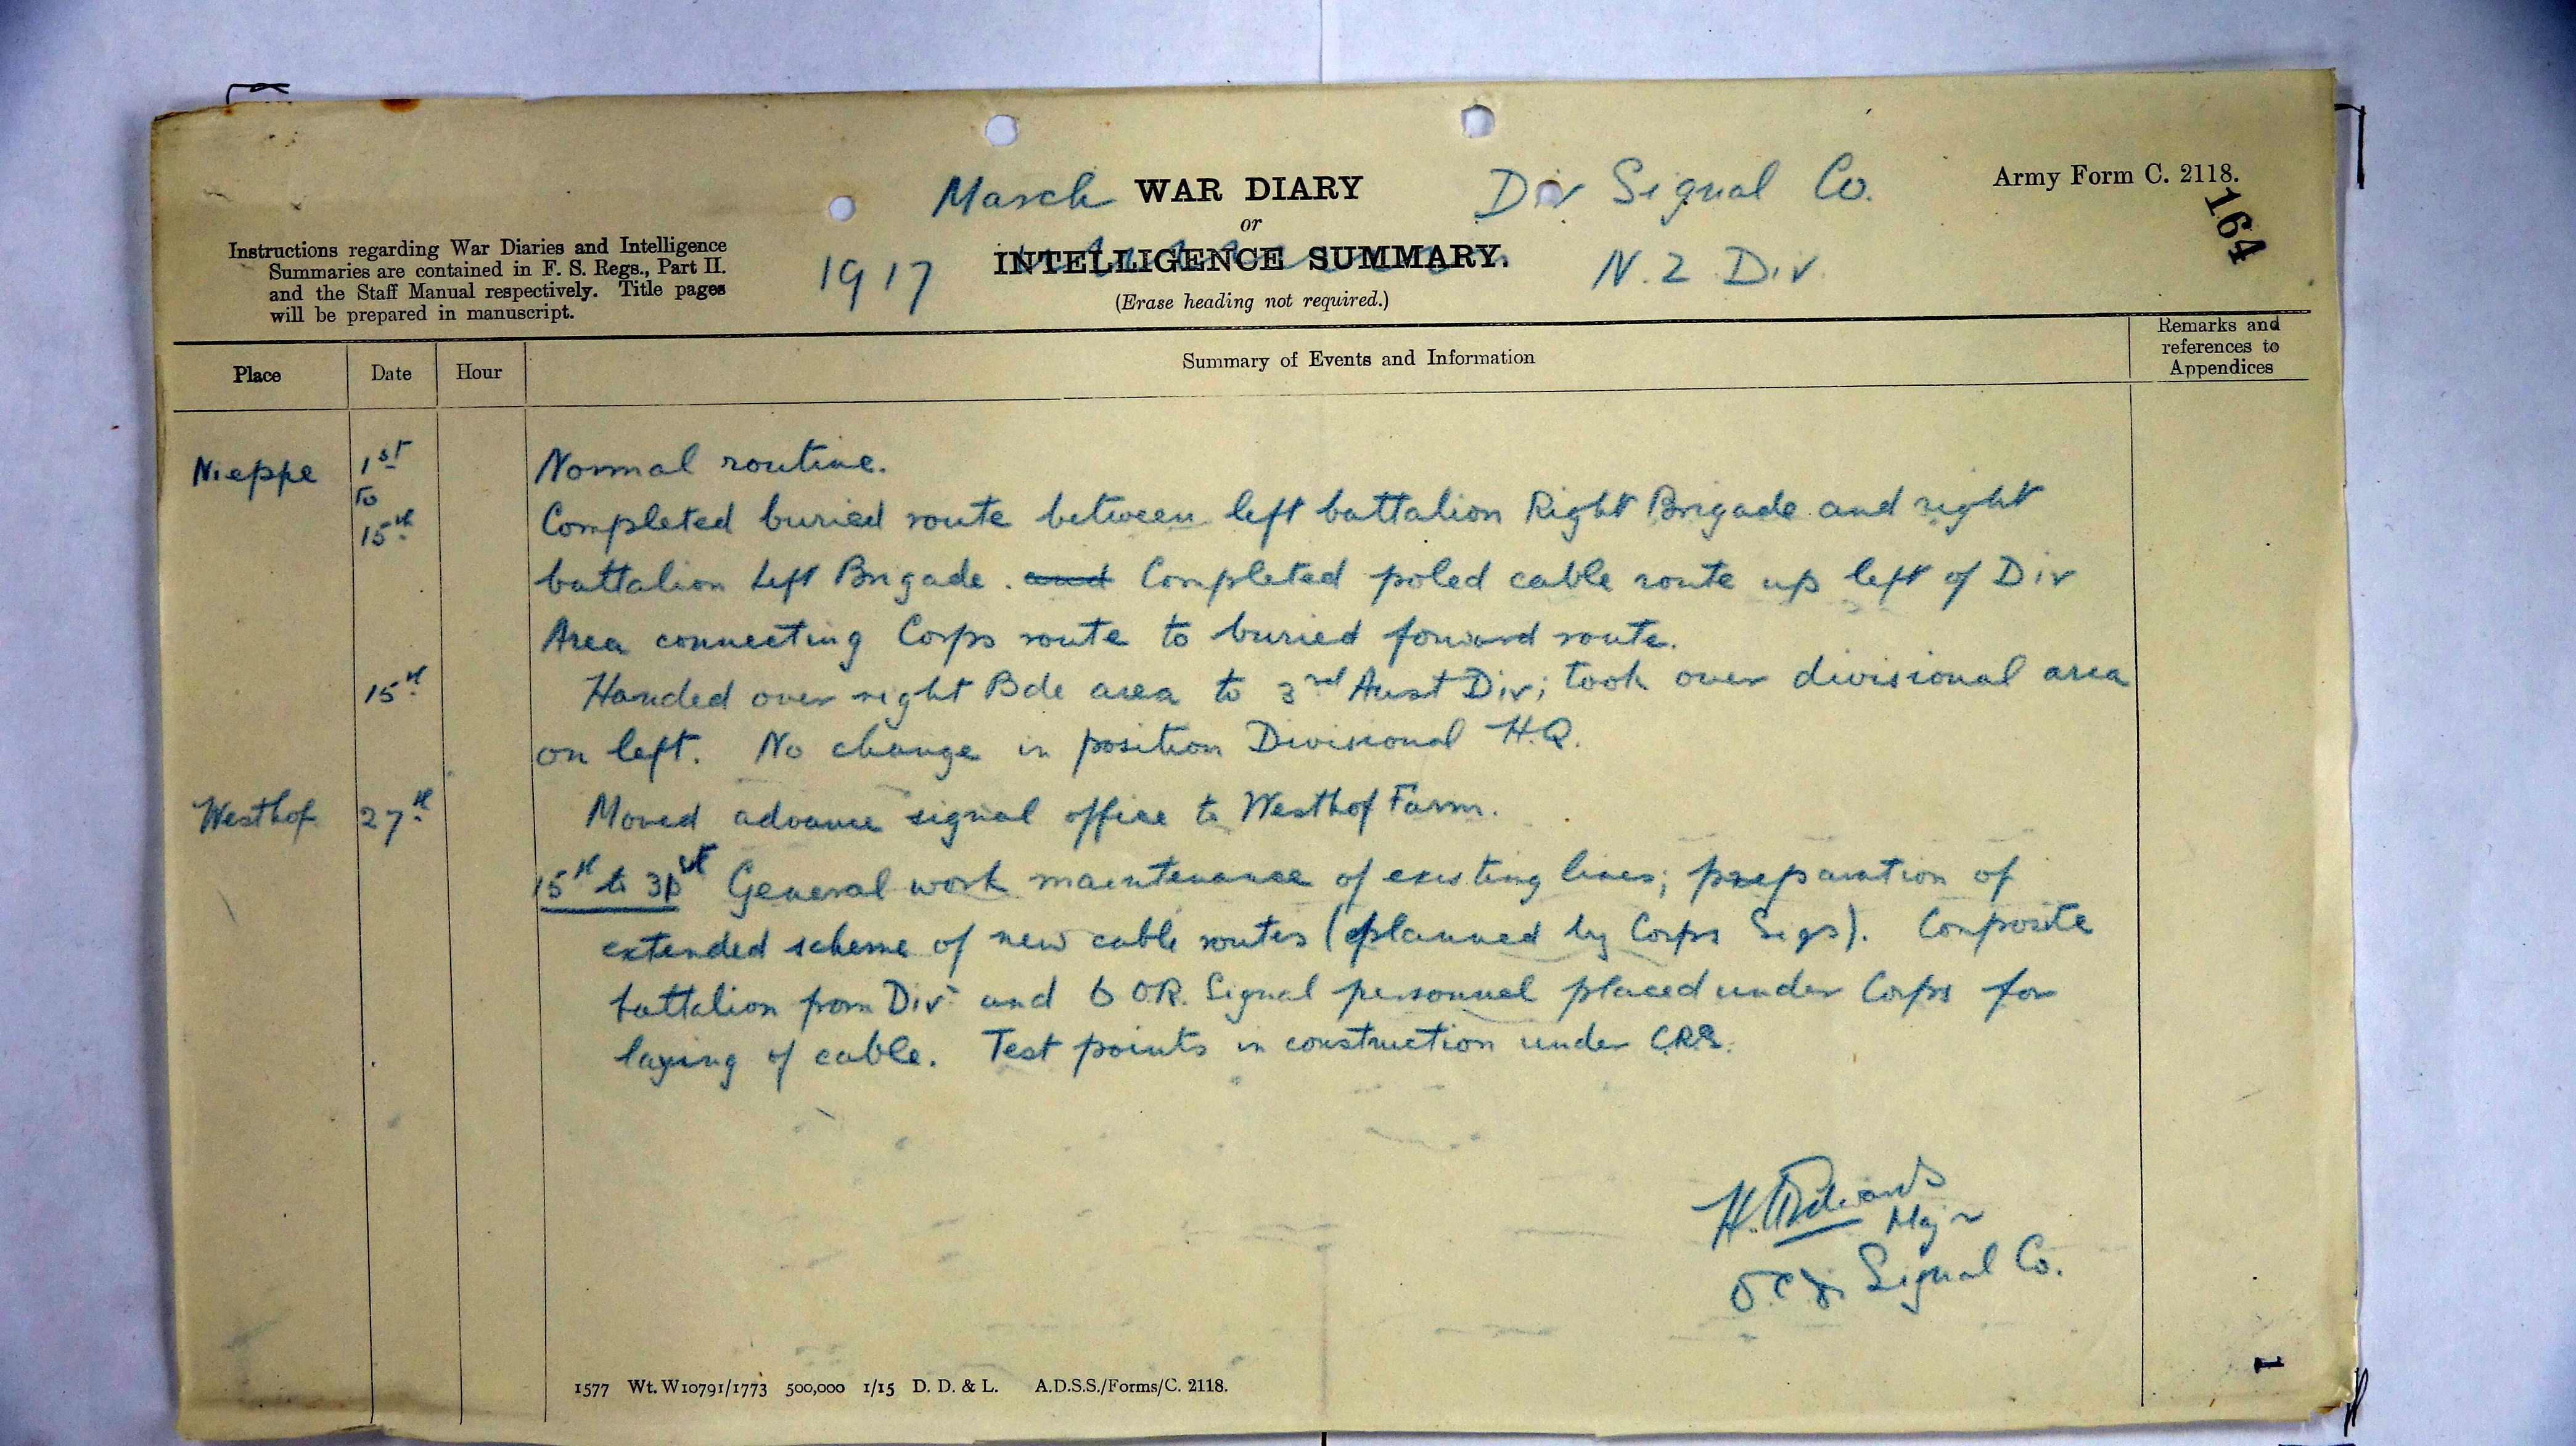 March WAR DIARY Div Signal Co. Army Form C. 2118.
164
or
1917 INTELLIGENCE SUMMARY. N.Z Div.
(Erase heading not required.)
Instructions regarding War Diaries and Intelligence
Summaries are contained in F. S. Regs., Part II.
and the Staff Manual respectively. Title pages
will be prepared in manuscript.
Place Date Hour Summary of Events and Information Remarks and
references to
Appendices
Nieppe 1st Normal routine.
to
15th Completed buried route between left battalion Right Brigade and right
battalion Left Brigade. and Completed poled cable route up left of Div
Area connecting Corps route to buried forward route.
15th Handed over right Bde area to 3rd Aust Div; took over divisional area
on left. No change in position Divisional H.Q.
Westhof 27th Moved advance signal office to Westhof Farm.
15th to 31st General work maintenance of existing lines; preparation of
extended scheme of new cable routes (planned by Corps Sigs). Composite
battalion from Div and 6 O.R. Signal personnel placed under Corps for
laying of cable. Test points in construction under C.R.E.
Major
O.C. Signal Co.
1577 Wt. W10791/1773 500,000 1/15 D. D. & L. A.D.S.S./Forms/C. 2118.
1